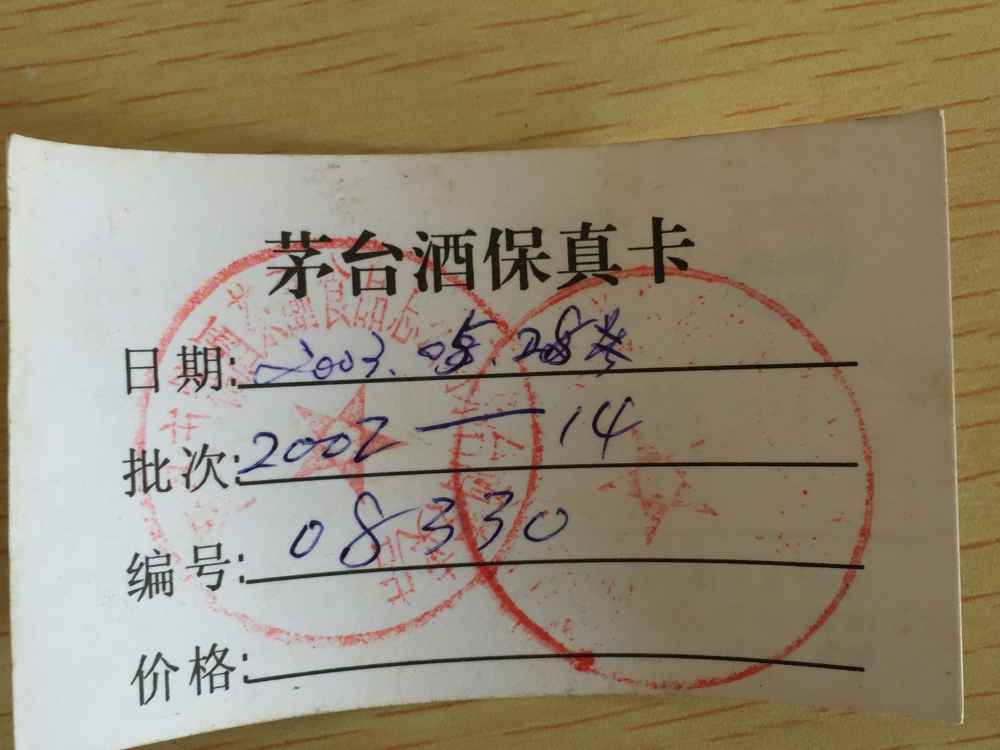 茅台酒保真卡
日期: 2003.05.28
批次: 2002—14
编号: 08330
价格: